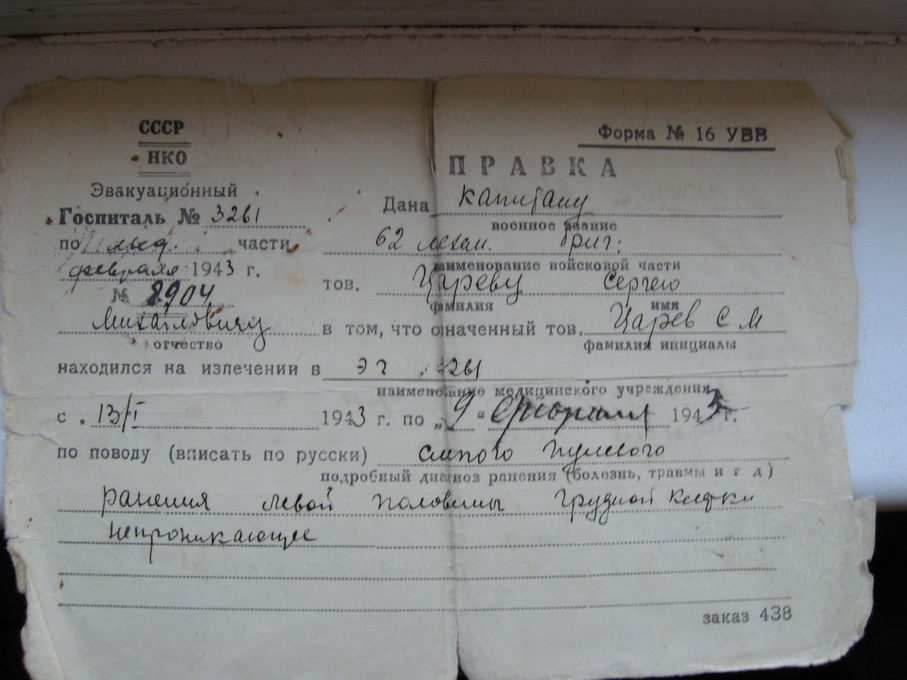 СССР
НКО
Эвакуационный
Госпиталь № 3261
по части
февраля 1943 г.
№ 8904
Форма № 16 УВВ
ПРАВКА
Дана капитану
военное звание
62 механ. бриг.
аименование войсковой части
тов. Цареву Сергею
фамилия имя
Михайловичу в том, что означенный тов. Царев С М
отчество фамилия инициалы
находился на излечении в ЭГ 3261
наименование медицинского учреждения
с 13/I 1943 г. по „9" февраля 1943 г.
по поводу (вписать по русски) слепого пулевого
подробный диагноз ранения (болезнь, травмы и т д )
ранения левой половины грудной клетки
непроникающее
заказ 438